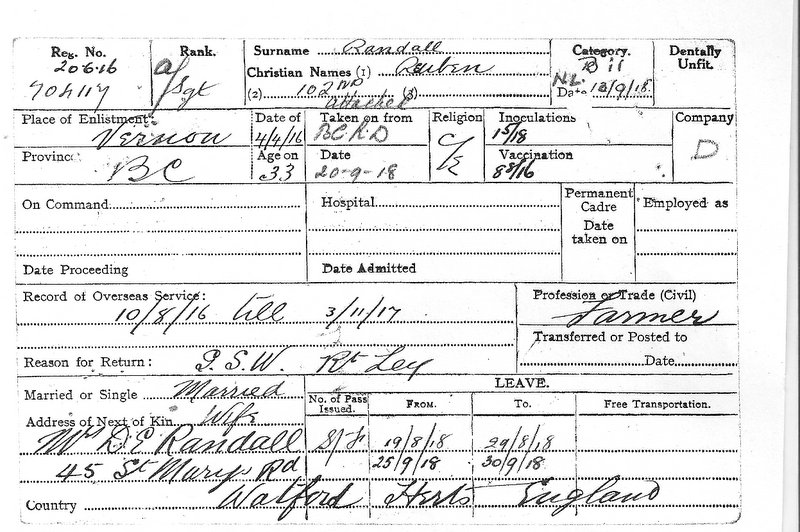 Reg. No. Rank. Surname Randall Category. Dentally
20·6·16 a/Sgt Christian Names (1) Reuben B ii Unfit.
704117 (2) 102ND (3) N.L. Date 18/9/18.
attached
Place of Enlistment Date of Taken on from Religion Inoculations Company
Vernon 4/4/16 B.C.R.D C/E 15/18 D
Province Age on Date Vaccination
BC 33 20-9-18 8/16
On Command Hospital Permanent Employed as
Cadre
Date
taken on
Date Proceeding Date Admitted
Record of Overseas Service: Profession or Trade (Civil)
10/8/16 till 3/11/17 Farmer
Transferred or Posted to
Reason for Return: G.S.W. Rt Leg Date
Married or Single Married LEAVE.
Address of Next of Kin Wife No. of Pass Issued. FROM. TO. Free Transportation.
Mrs D. E Randall 19/8/18 29/8/18
45 St Marys Rd 25/9/18 30/9/18
Country Watford Herts England